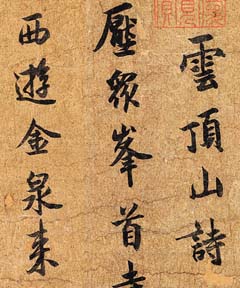 雲頂山詩
壓衆峯首
西遊金泉来